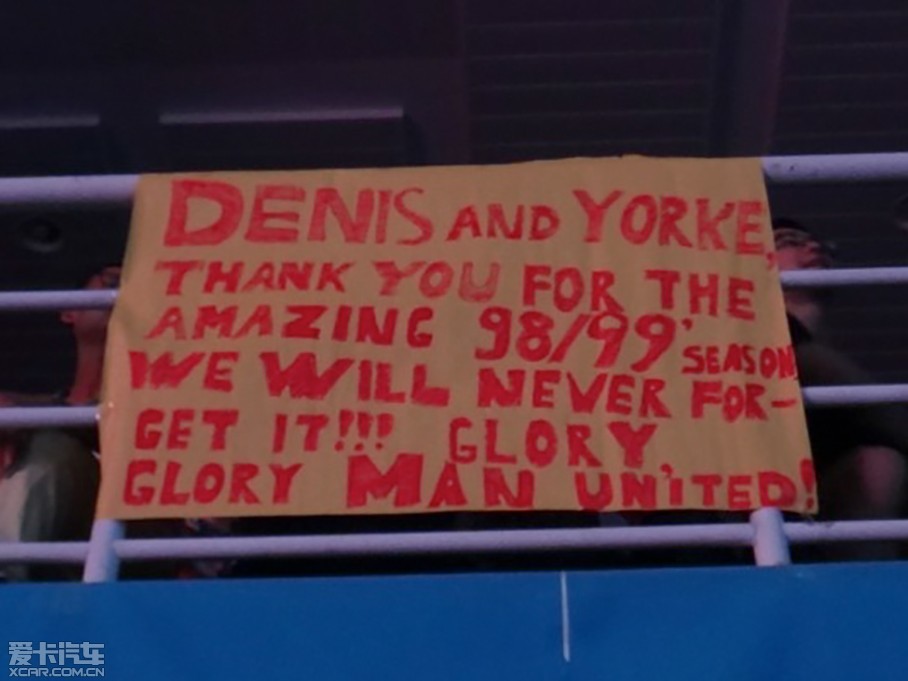 DENIS AND YORKE,
THANK YOU FOR THE
AMAZING 98/99' SEASON
WE WILL NEVER FOR-
GET IT!!! GLORY,
GLORY MAN UNITED!
爱卡汽车
XCAR.COM.CN